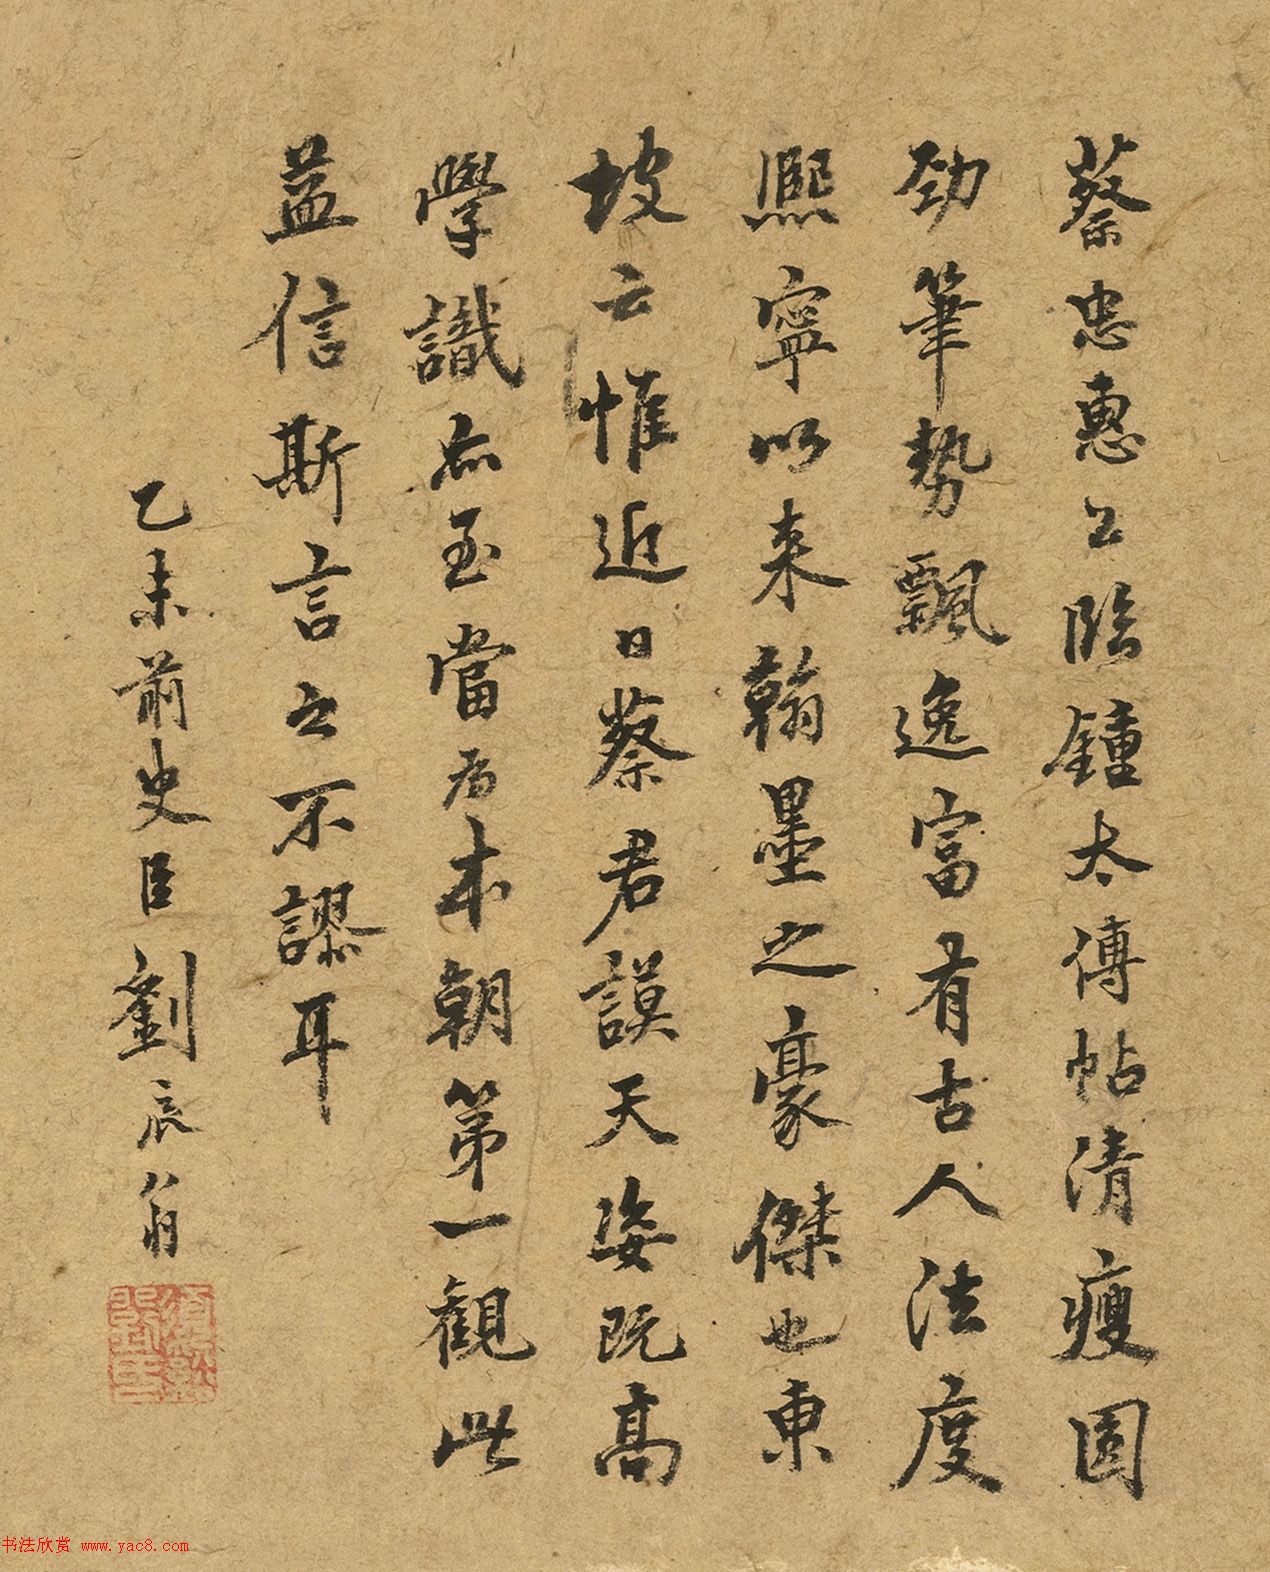 蔡忠惠公臨鍾太傅帖清瘦圓
勁筆勢飄逸富有古人法度
熙寧以来翰墨之豪傑也東
坡云惟近日蔡君謨天姿既高
學識亦至當為本朝第一觀此
益信斯言之不謬耳
乙未前史臣劉辰翁
书法欣赏 www.yac8.com